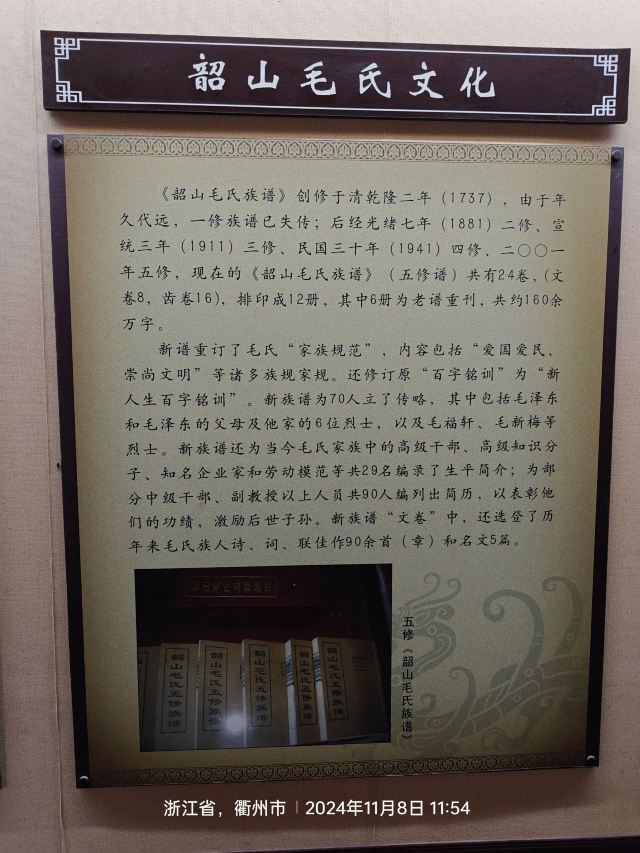 韶山毛氏文化
《韶山毛氏族谱》创修于清乾隆二年（1737），由于年
久代远，一修族谱已失传；后经光绪七年（1881）二修、宣
统三年（1911）三修、民国三十年（1941）四修、二〇〇一
年五修，现在的《韶山毛氏族谱》（五修谱）共有24卷，(文
卷8，齿卷16)、排印成12册，其中6册为老谱重刊，共约160余
万字。
新谱重订了毛氏“家族规范”，内容包括“爱国爱民、
崇尚文明”等诸多族规家规。还修订原“百字铭训”为“新
人生百字铭训”。新族谱为70人立了传略，其中包括毛泽东
和毛泽东的父母及他家的6位烈士，以及毛福轩、毛新梅等
烈士。新族谱还为当今毛氏家族中的高级干部、高级知识分
子、知名企业家和劳动模范等共29名编录了生平简介；为部
分中级干部、副教授以上人员共90人编列出简历，以表彰他
们的功绩，激励后世子孙。新族谱“文卷”中，还选登了历
年来毛氏族人诗、词、联佳作90余首（章）和名文5篇。
韶山毛氏五修族谱
韶山毛氏五修族谱
韶山毛氏五修族谱
韶山毛氏五修族谱
韶山毛氏五修族谱
韶山毛氏五修族谱
五修《韶山毛氏族谱》
浙江省，衢州市 | 2024年11月8日 11:54